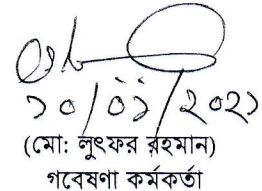 ১০/০১/২০২১
(মো: লুৎফর রহমান)
গবেষণা কর্মকর্তা